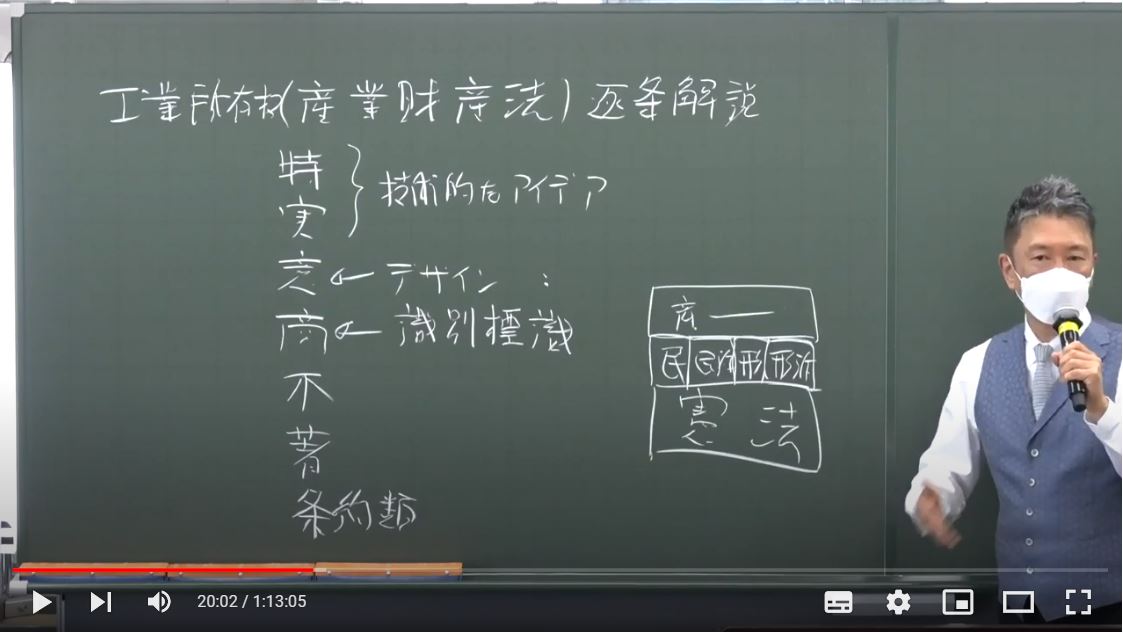 工業所有权(産業財産法)逐条解説
特
実
技術的なアイデア
意 ← デザイン :
商 ← 識別標識
不
著
条約類
産 ―
民 民訴 形 形訴
憲 法
20:02 / 1:13:05